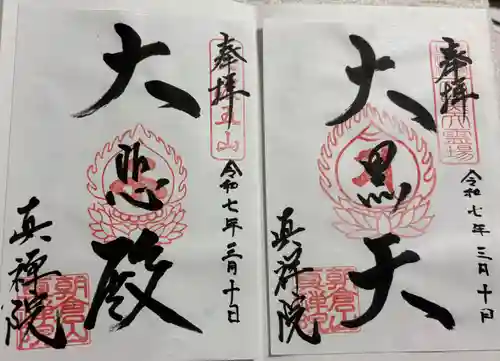 奉拝
大黒天
令和七年三月十日
真禅院
朝倉山
真禅院
奉拝
大悲殿
令和七年三月十日
真禅院
朝倉山
真禅院